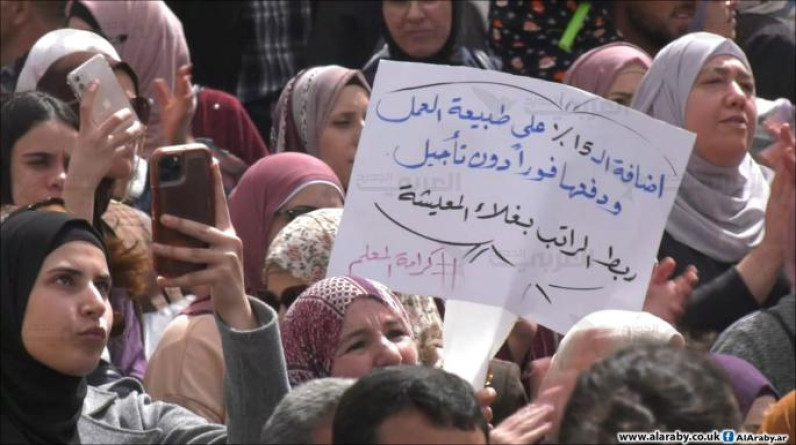 اضافة الـ 15٪ على طبيعة العمل
ودفعها فوراً دون تأجيل
ربط الراتب بغلاء المعيشة
#كرامة المعلم
www.alaraby.co.uk f AlAraby.ar